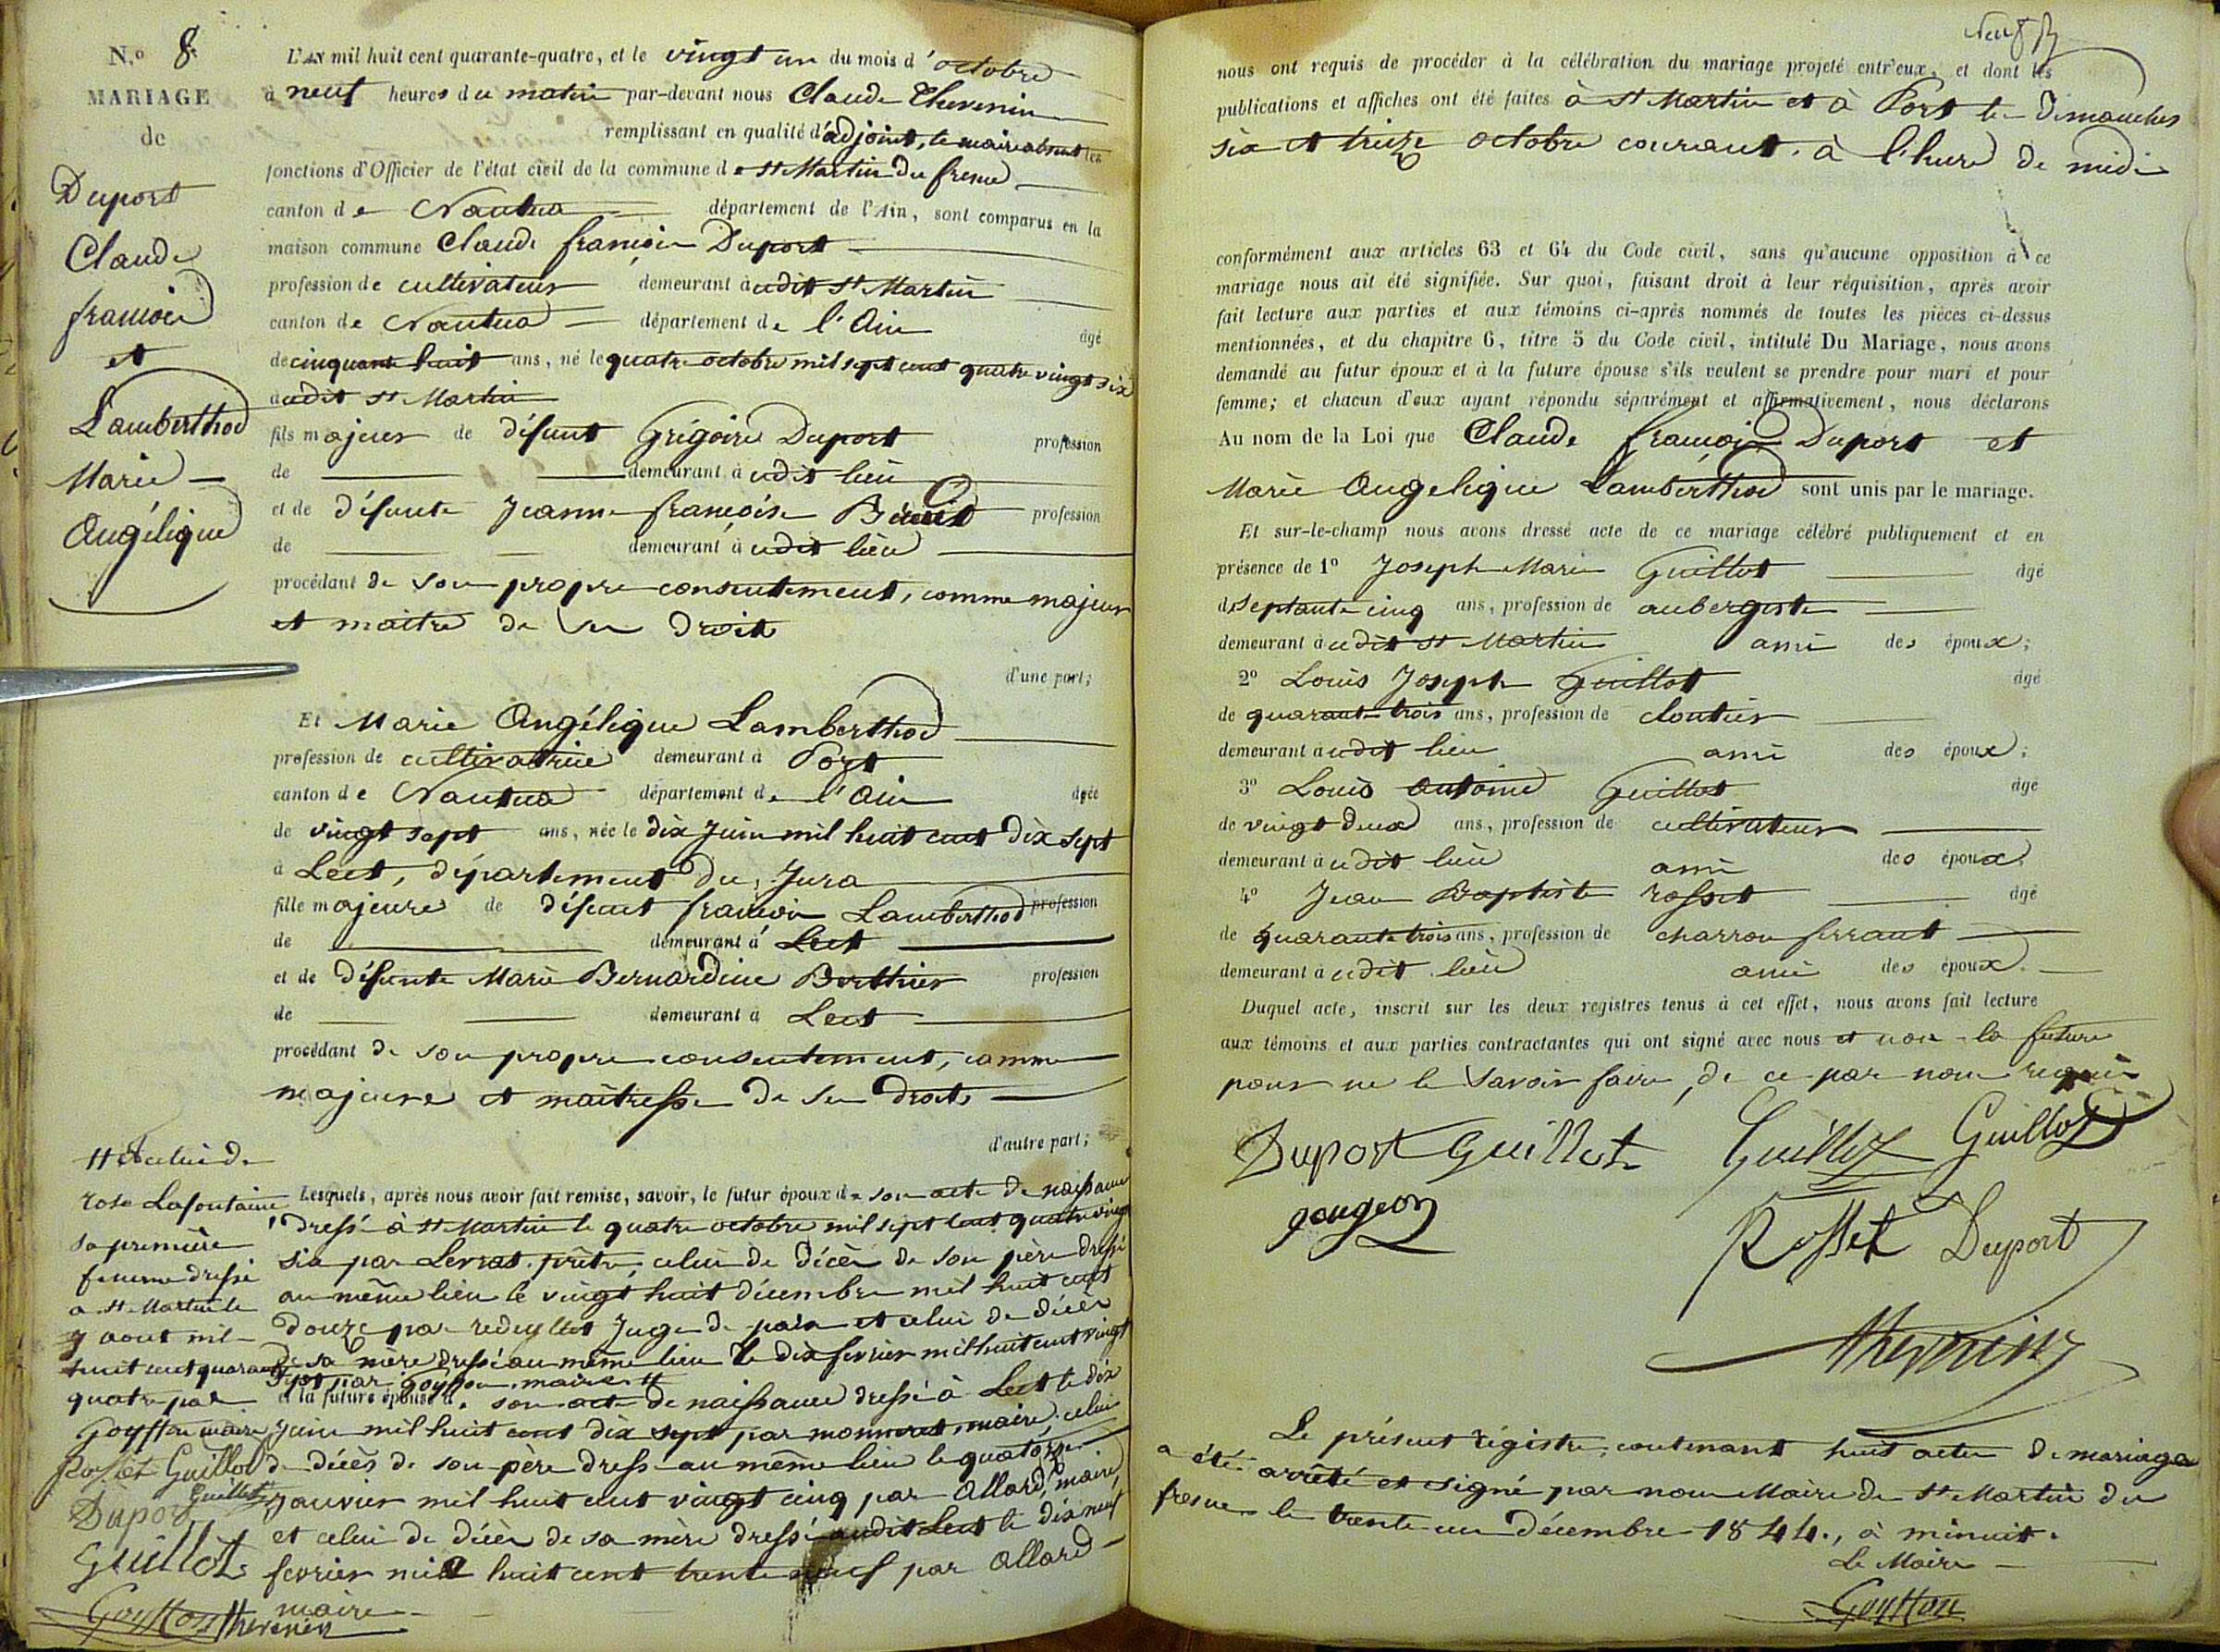 N.o 8.
MARIAGE
de
Duport
Claude
françois
et
Lamberthod
Marie
Angélique
L'AN mil huit cent quarante-quatre, et le vingt un du mois d'octobre
à neuf heures du matin par-devant nous Claude Thevenin
remplissant en qualité d'adjoint, le maire absent les
fonctions d'Officier de l'état civil de la commune de st Martin du fresne
canton de Nantua département de l'Ain, sont comparus en la
maison commune Claude françois Duport
profession de cultivateur demeurant audit st Martin
canton de Nantua département de l'Ain âgé
de cinquante huit ans, né le quatre octobre mil sept cent quatre vingt six
audit st Martin
fils majeur de défunt Grégoire Duport profession
de demeurant audit lieu
et de défunte Jeanne françoise profession
de demeurant audit lieu
procédant de son propre consentement, comme majeur
et maître de ses droits
d'une part;
Et Marie Angélique Lamberthod
profession de cultivatrice demeurant à Port
canton de Nantua département de l'Ain âgée
de vingt sept ans, née le dix Juin mil huit cent dix sept
à Lect, département du Jura
fille majeure de défunt françois Lamberthod profession
de demeurant à Lect
et de défunte Marie Bernardine Berthier profession
de demeurant à Lect
procédant de son propre consentement, comme
majeure et maîtresse de ses droits
d'autre part;
Lesquels, après nous avoir fait remise, savoir, le futur époux de son acte de naissance
dressé à st Martin le quatre octobre mil sept cent quatre vingt
six par Levrat prêtre, celui de décès de son père dressé
au même lieu le vingt huit décembre mil huit cent
douze par Juge de paix et celui de décès
de sa mère dressé au même lieu le dix fevrier mil huit cent vingt
sept par Goyffon, maire #
et la future épouse d. son acte de naissance dressé à Lect le dix
Juin mil huit cent dix sept par monneret, maire, celui
de décès de son père dressé au même lieu le quatorze
janvier mil huit cent vingt cinq par Allard, maire,
et celui de décès de sa mère dressé audit Lect le dix neuf
fevrier mil huit cent trente neuf par Allard
maire
# et celui de
rose Lafontaine
sa première
femme dressé
a st Martin le
9 aout mil
huit cent quarante
quatre par
Goyffon maire
Rosset Guillot
Guillot
Duport
Guillot
Goyffon Thevenin
Neuf
nous ont requis de procéder à la célébration du mariage projeté entr'eux, et dont les
publications et affiches ont été faites à st Martin et à Port les Dimanches
six et treize octobre courant, à l'heure de midi
conformément aux articles 63 et 64 du Code civil, sans qu'aucune opposition à ce
mariage nous ait été signifiée. Sur quoi, faisant droit à leur réquisition, après avoir
fait lecture aux parties et aux témoins ci-après nommés de toutes les pièces ci-dessus
mentionnées, et du chapitre 6, titre 5 du Code civil, intitulé Du Mariage, nous avons
demandé au futur époux et à la future épouse s'ils veulent se prendre pour mari et pour
femme; et chacun d'eux ayant répondu séparément et affirmativement, nous déclarons
Au nom de la Loi que Claude françois Duport et
Marie Angelique Lamberthod sont unis par le mariage.
Et sur-le-champ nous avons dressé acte de ce mariage célébré publiquement et en
présence de 1o Joseph Marie Guillot âgé
de septante cinq ans, profession de aubergiste
demeurant audit st Martin ami des époux;
2o Louis Joseph Guillot âgé
de quarante trois ans, profession de cloutier
demeurant audit lieu ami des époux;
3o Louis Antoine Guillot âgé
de vingt deux ans, profession de cultivateur
demeurant audit lieu ami des époux;
4o Jean Baptiste rosset âgé
de quarante trois ans, profession de charron ferrant
demeurant audit lieu ami des époux.
Duquel acte, inscrit sur les deux registres tenus à cet effet, nous avons fait lecture
aux témoins et aux parties contractantes qui ont signé avec nous et non la future
pour ne le savoir faire, de ce par nous requis
Duport Guillot Guillot Guillot
gougeon
Rosset Duport
thevenin
Le présent régistre, contenant huit actes de mariage
a été arrêté et signé par nous Maire de st Martin du
fresne le trente un Décembre 1844, à minuit.
Le Maire
Goyffon